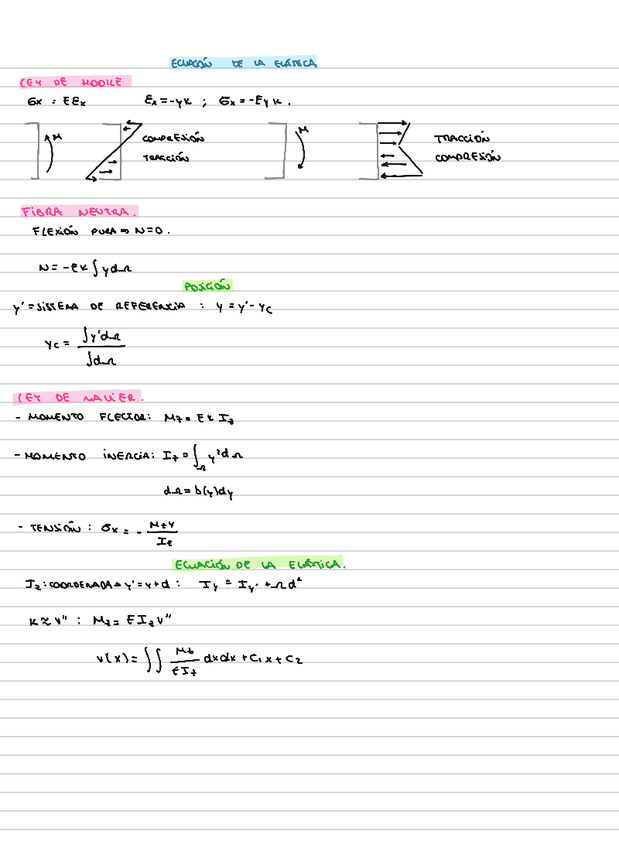 ECUACIÓN DE LA ELÁSTICA
LEY DE HOOKE
σx = E Ex    Ex = -yκ ; σx = -Eyκ.
M COMPRESIÓN M TRACCIÓN
TRACCIÓN COMPRESIÓN
FIBRA NEUTRA.
FLEXIÓN PURA ⇒ N=0.
N = -Eκ∫ydΩ
POSICIÓN
y' = SISTEMA DE REFERENCIA : y = y' - yc
yc = ∫y'dΩ / ∫dΩ
LEY DE NAVIER.
- MOMENTO FLECTOR: Mz = Eκ Iz
- MOMENTO INERCIA: Iz = ∫Ω y²dΩ
dΩ = b(y)dy
- TENSIÓN : σx = - Mzy / Iz
ECUACIÓN DE LA ELÁSTICA.
Iz : COORDENADA → y' = y+d : Iy = Iy' + Ωd²
κ ≈ v'' : Mz = EIzv''
v(x) = ∫∫ Mz / EIz dxdx + C1x + C2